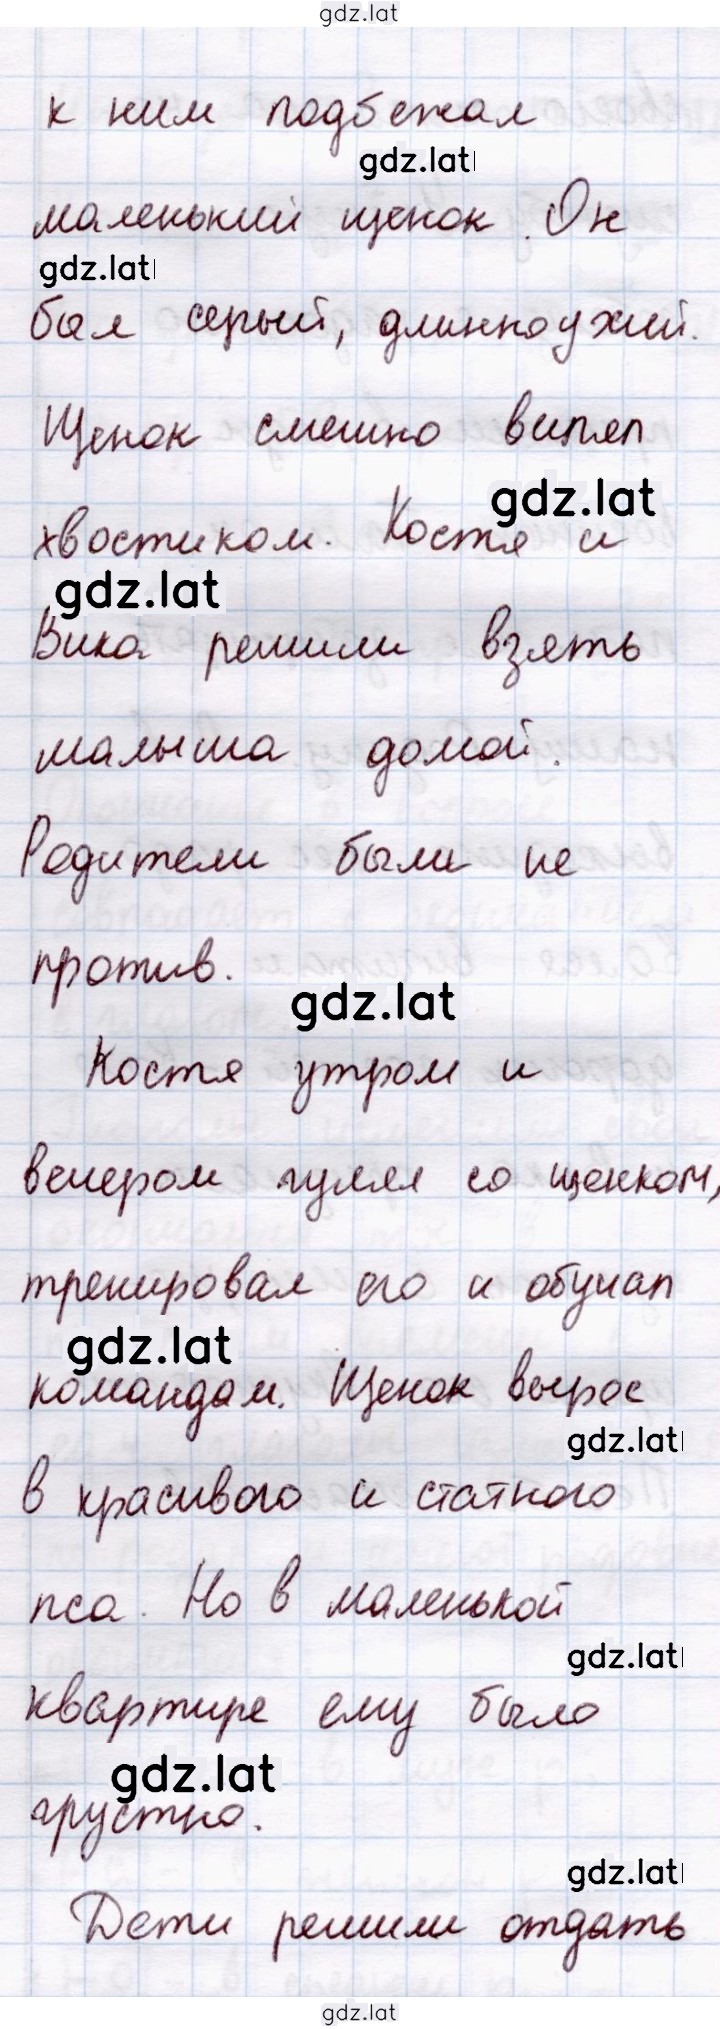 gdz.lat
к ним подбежал
gdz.lat
маленький щенок. Он
gdz.lat
был серый, длинноухий.
Щенок смешно вилял
gdz.lat
хвостиком. Костя и
gdz.lat
Вика решили взять
малыша домой.
Родители были не
против.
gdz.lat
Костя утром и
вечером гулял со щенком,
тренировал его и обучал
gdz.lat
командам. Щенок вырос
gdz.lat
в красивого и статного
пса. Но в маленькой
gdz.lat
квартире ему было
gdz.lat
грустно.
gdz.lat
Дети решили отдать
gdz.lat